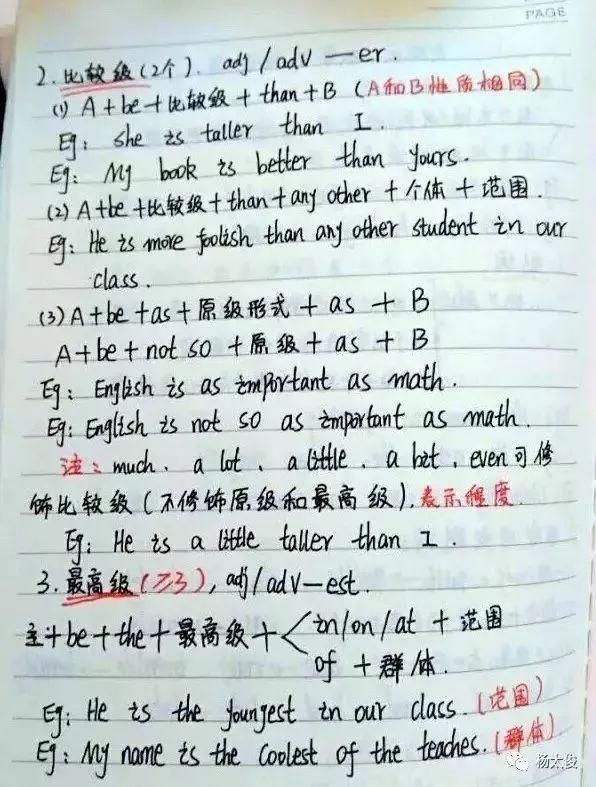 PAGE
2. 比较级(2个). adj / adv — er.
(1) A + be + 比较级 + than + B (A和B性质相同)
Eg: she is taller than I.
Eg: My book is better than yours.
(2) A+be +比较级+than+any other + 个体 + 范围.
Eg: He is more foolish than any other student in our
class.
(3) A+be+as+原级形式+as+B
A+be+not so+原级+as+B
Eg: English is as important as math.
Eg: English is not so as important as math.
注: much、a lot、a little、a bit、even可修
饰比较级(不修饰原级和最高级).表示程度.
Eg: He is a little taller than I.
3. 最高级(≥3), adj/adv—est.
主+be+the+最高级+< in/on/at + 范围
of + 群体.
Eg: He is the youngest in our class.(范围)
Eg: My name is the coolest of the teaches.(群体)
杨太俊